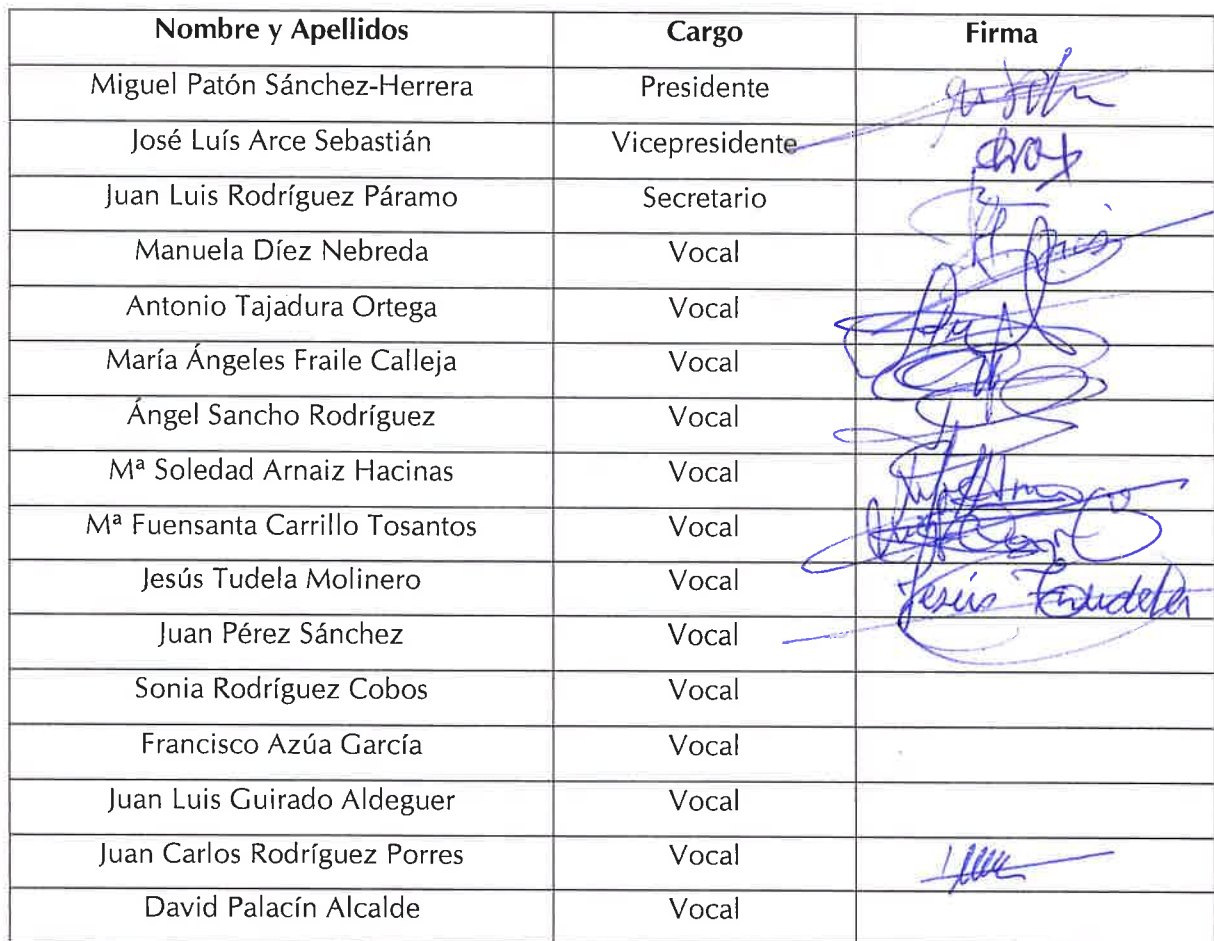 Nombre y Apellidos Cargo Firma
Miguel Patón Sánchez-Herrera Presidente
José Luís Arce Sebastián Vicepresidente
Juan Luis Rodríguez Páramo Secretario
Manuela Díez Nebreda Vocal
Antonio Tajadura Ortega Vocal
María Ángeles Fraile Calleja Vocal
Ángel Sancho Rodríguez Vocal
Mª Soledad Arnaiz Hacinas Vocal
Mª Fuensanta Carrillo Tosantos Vocal
Jesús Tudela Molinero Vocal Jesús
Juan Pérez Sánchez Vocal
Sonia Rodríguez Cobos Vocal
Francisco Azúa García Vocal
Juan Luis Guirado Aldeguer Vocal
Juan Carlos Rodríguez Porres Vocal
David Palacín Alcalde Vocal